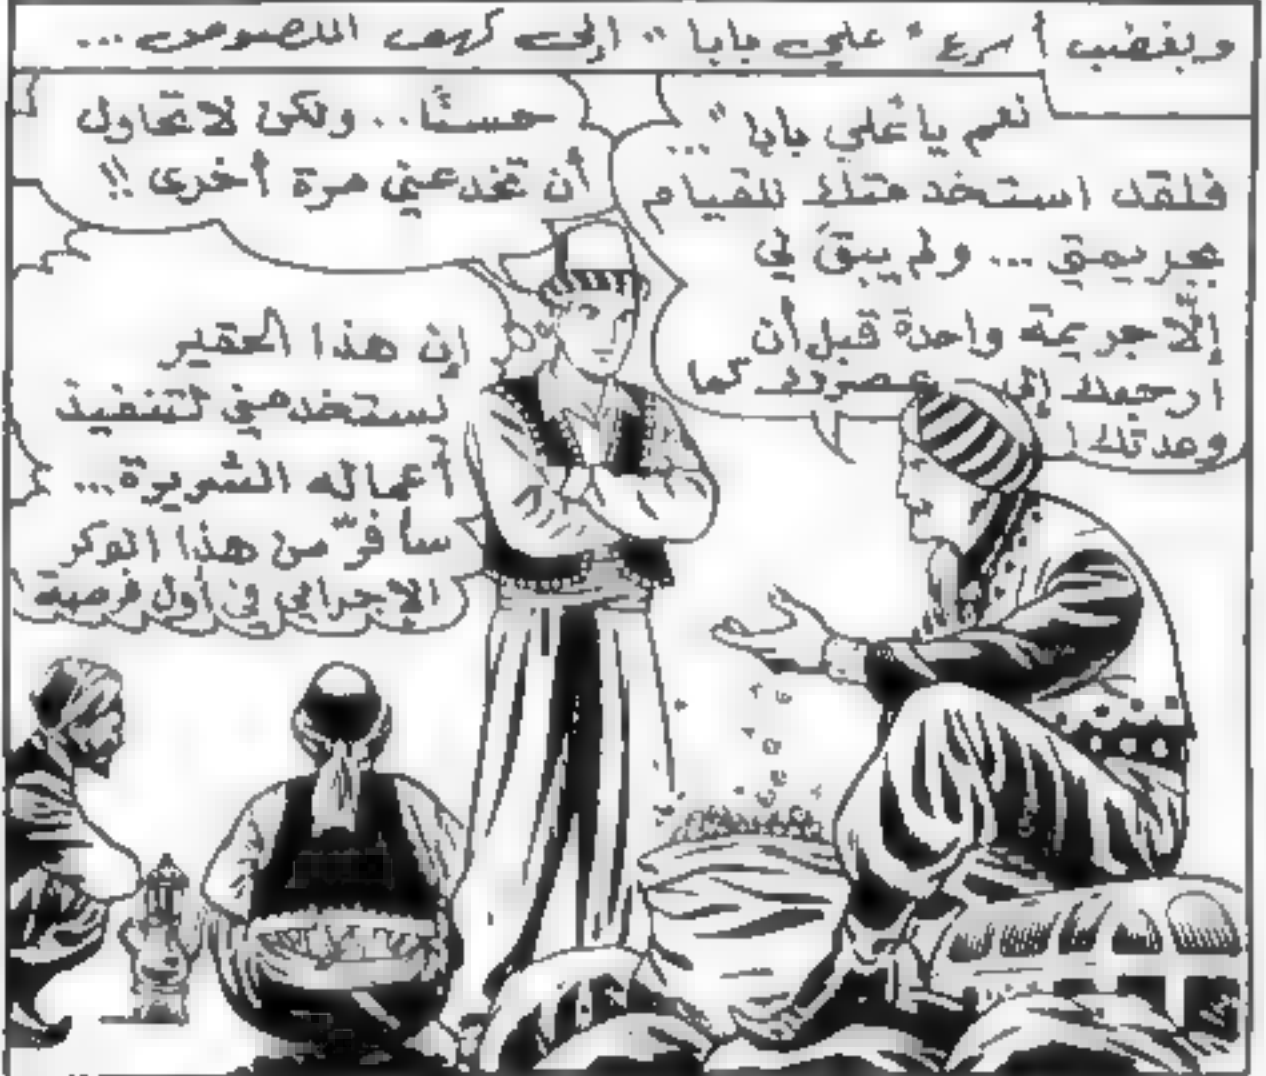 وبغضب أسرع "علي بابا" إلى كهف اللصوص ...
نعم يا علي بابا" ...
فلقد استخدمتك للقيام
بجريمتي ... ولم يبقَ لي
إلّا جريمة واحدة قبل أن
ارجعك إلى عصرك كما
وعدتك!
حسنًا .. ولكن لا تحاول
أن تخدعني مرة أخرى !!
إن هذا الحقير
يستخدمني لتنفيذ
أعماله الشريرة...
سأفرّ من هذا الوكر
الإجرامي في أول فرصة